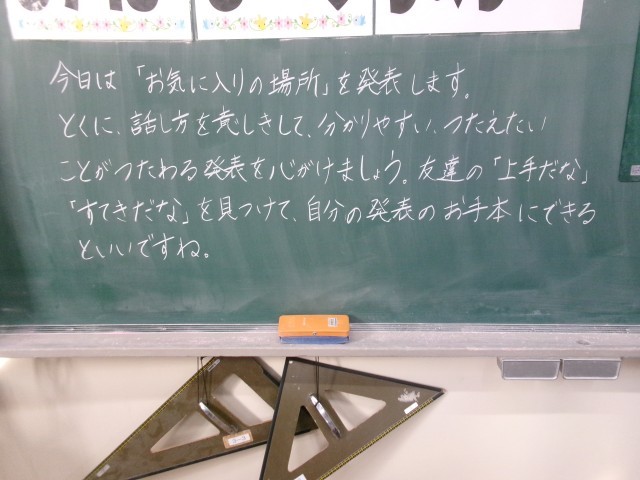 今日は「お気に入りの場所」を発表します。
とくに、話し方を意しきして、分かりやすい、つたえたい
ことがつたわる発表を心がけましょう。友達の「上手だな」
「すてきだな」を見つけて、自分の発表のお手本にできる
といいですね。